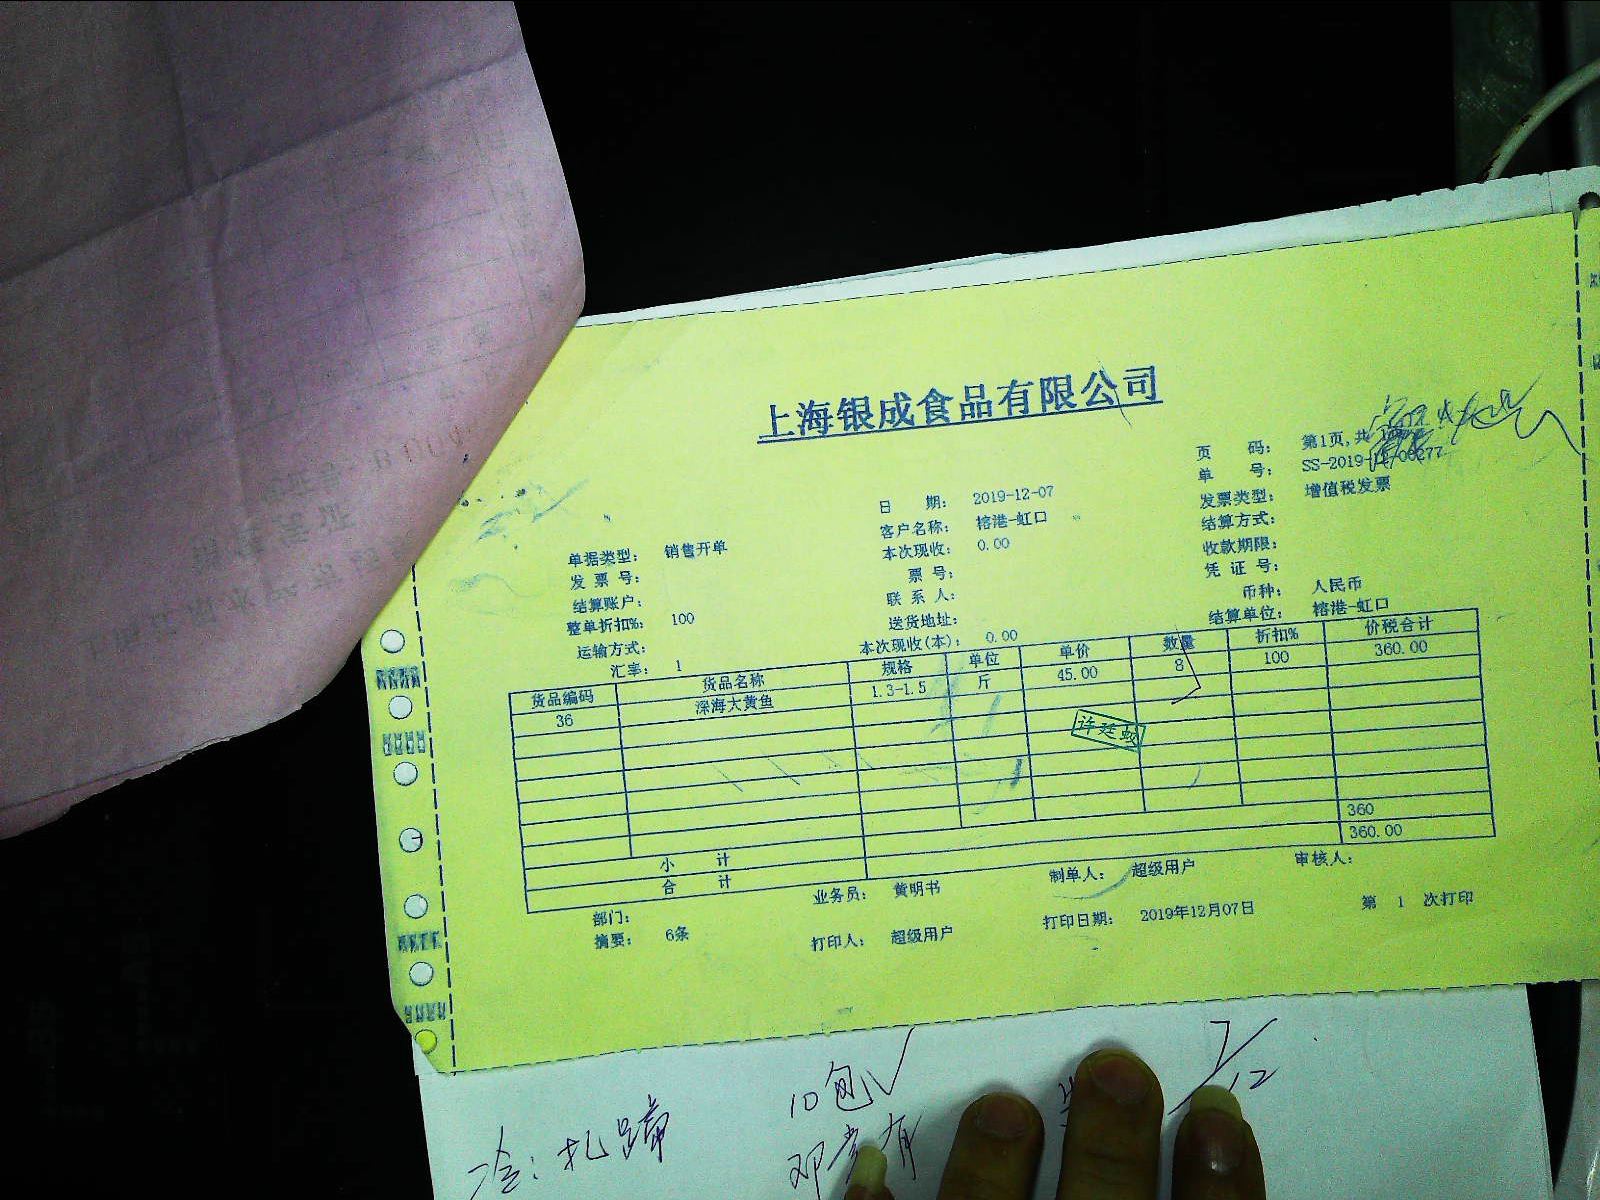 上海银成食品有限公司
页 码： 第1页,共
单 号： SS-2019-12-00277
日 期： 2019-12-07
发票类型： 增值税发票
客户名称： 榕港-虹口
结算方式：
单据类型： 销售开单
本次现收： 0.00
收款期限：
发 票 号：
票 号：
凭 证 号：
结算账户：
联 系 人：
币种： 人民币
整单折扣%： 100
送货地址：
结算单位： 榕港-虹口
运输方式：
本次现收(本)： 0.00
汇率： 1
货品编码 货品名称 规格 单位 单价 数量 折扣% 价税合计
36 深海大黄鱼 1.3-1.5 斤 45.00 8 100 360.00
许廷蛟
小 计 360
合 计 360.00
部门： 业务员： 黄明书 制单人： 超级用户 审核人：
摘要： 6条 打印人： 超级用户 打印日期： 2019年12月07日 第 1 次打印
冷：扎蹄 10包 7/12